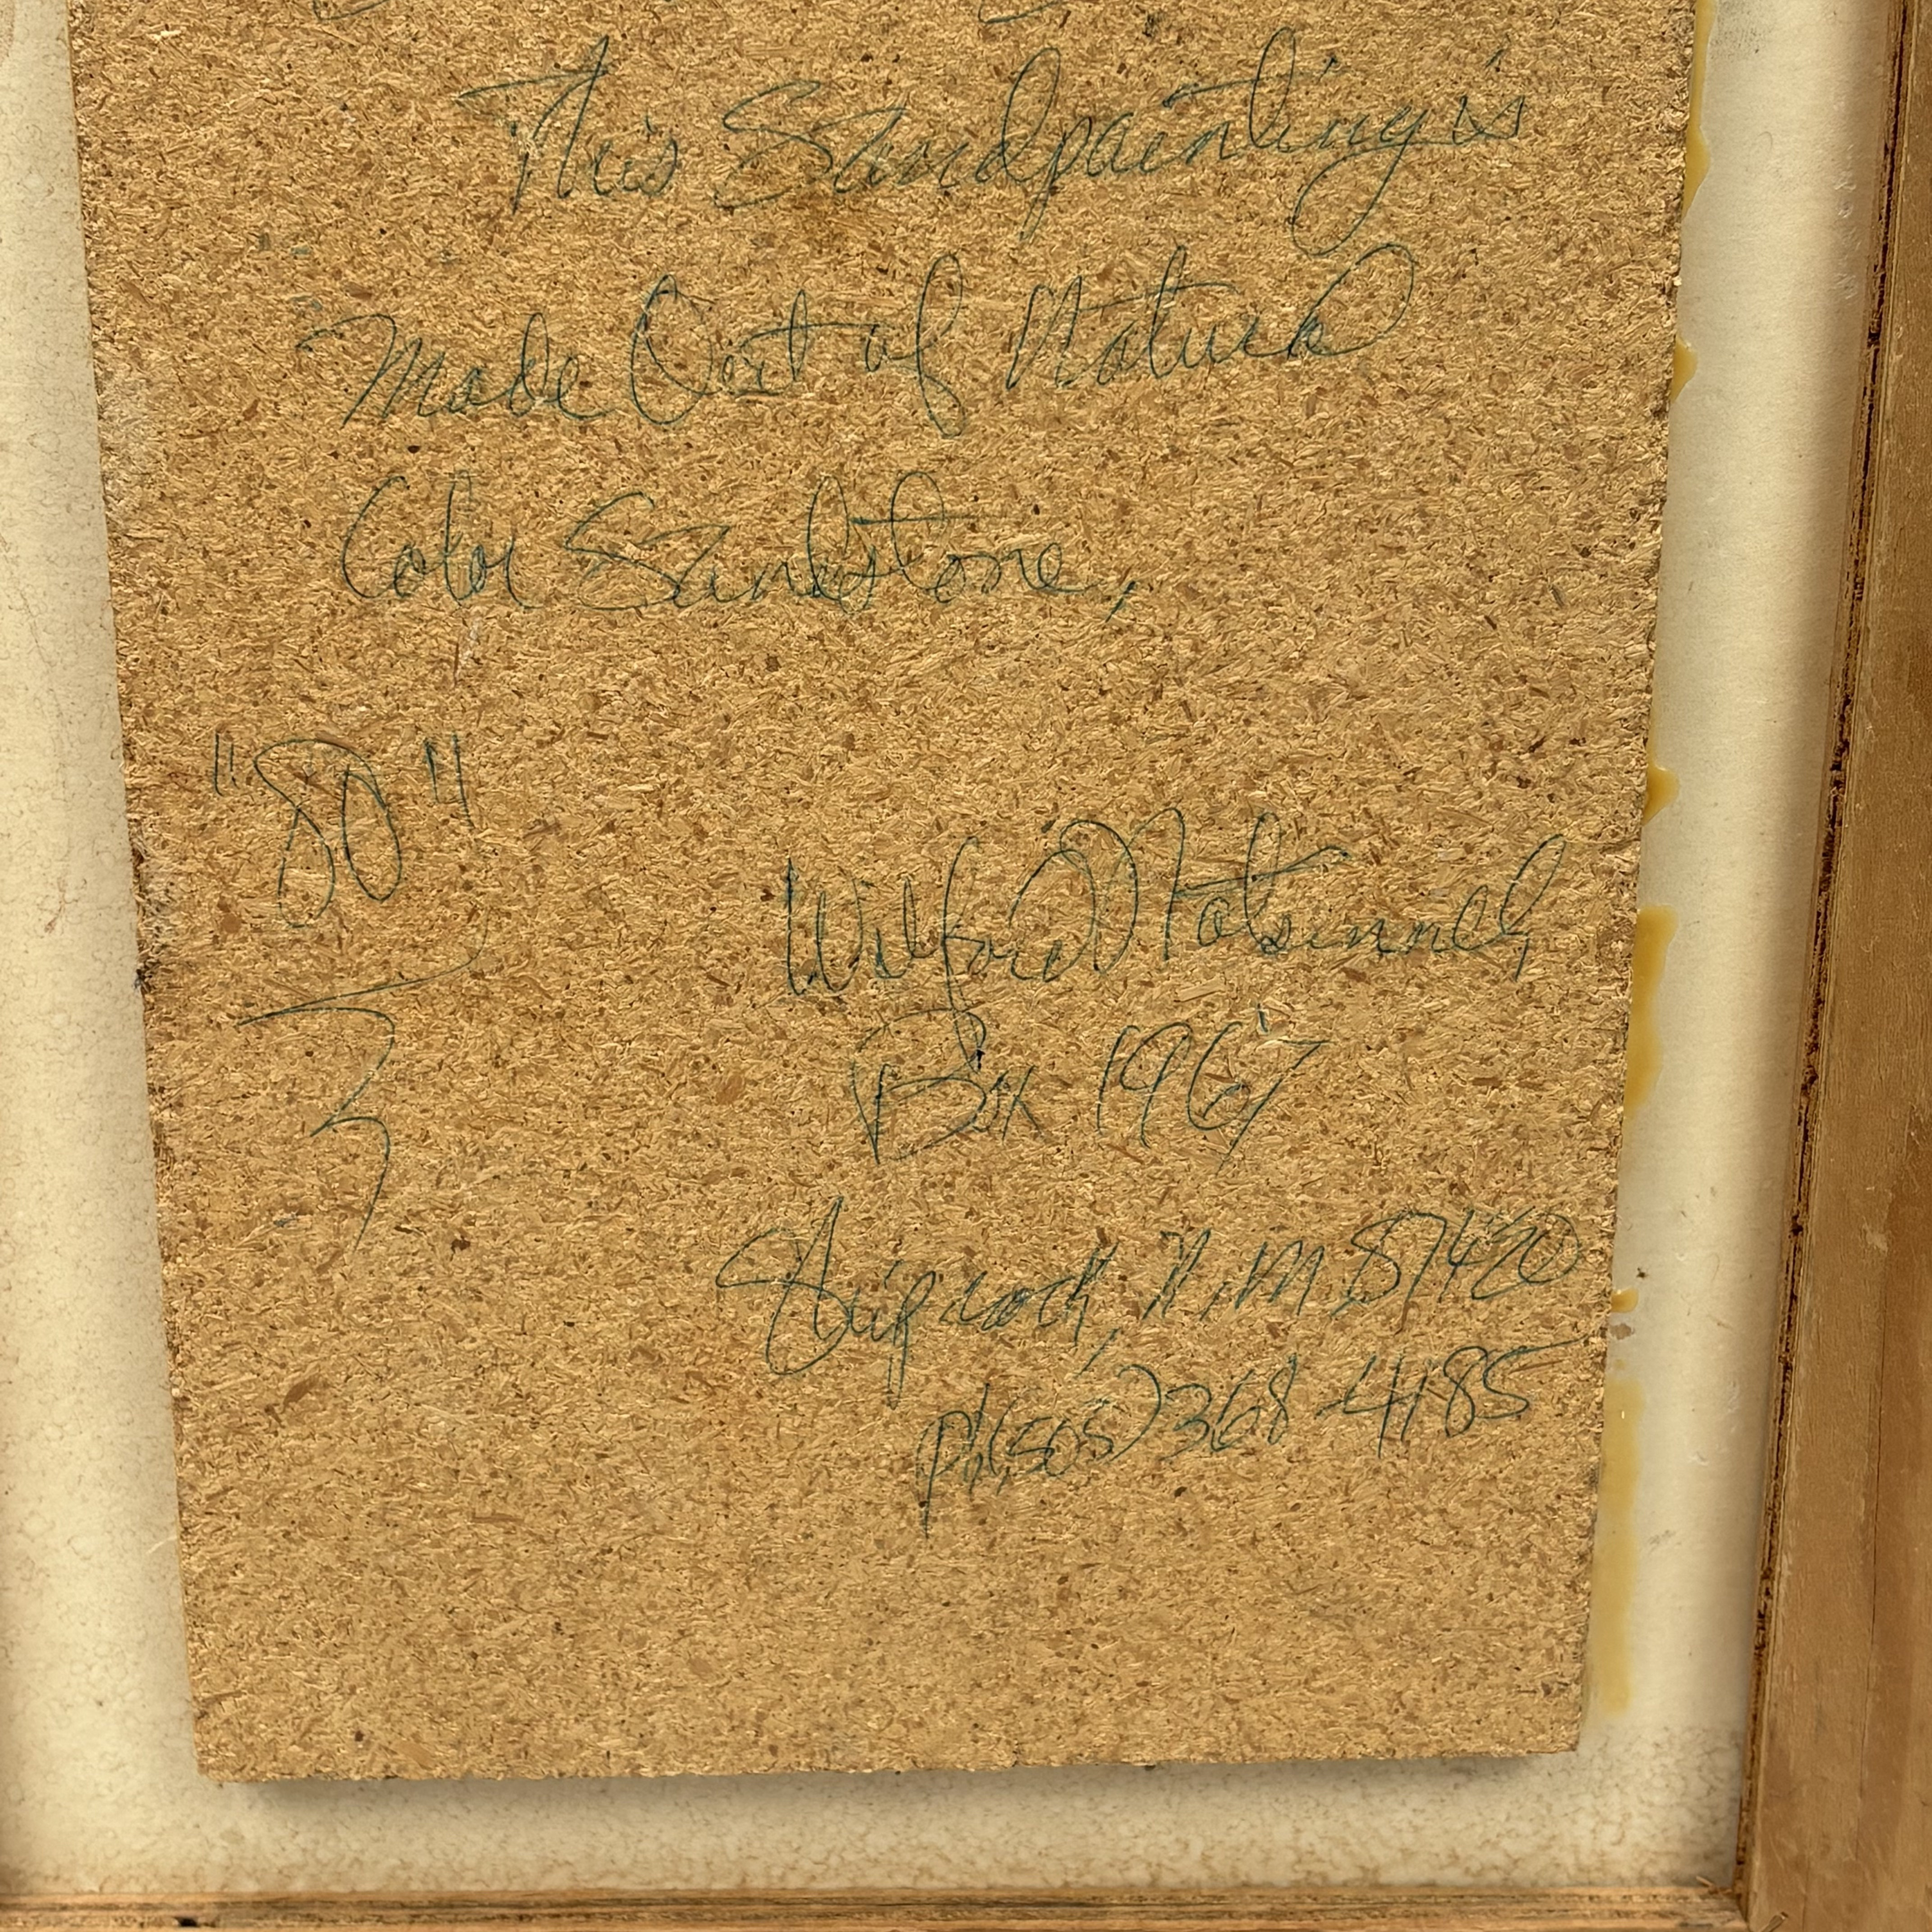 This Sandpainting is
Made Out of Natural
Color Sandstone,
"80"
Wilford
Box 1967
Shiprock, N.M 87420
ph(505) 368-4185